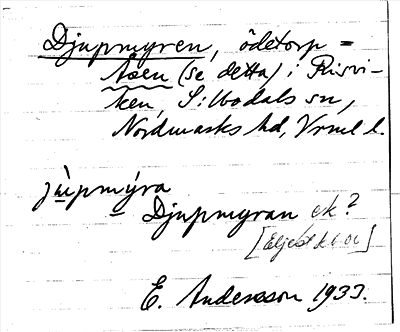 Djupmyren, ödetorp =
Åsen (se detta) i Risvi-
ken, Sillbodals sn,
Nordmarks hd, Vrml l.
jùpmýra
Djupmyran ek?
E. Andersson 1933.